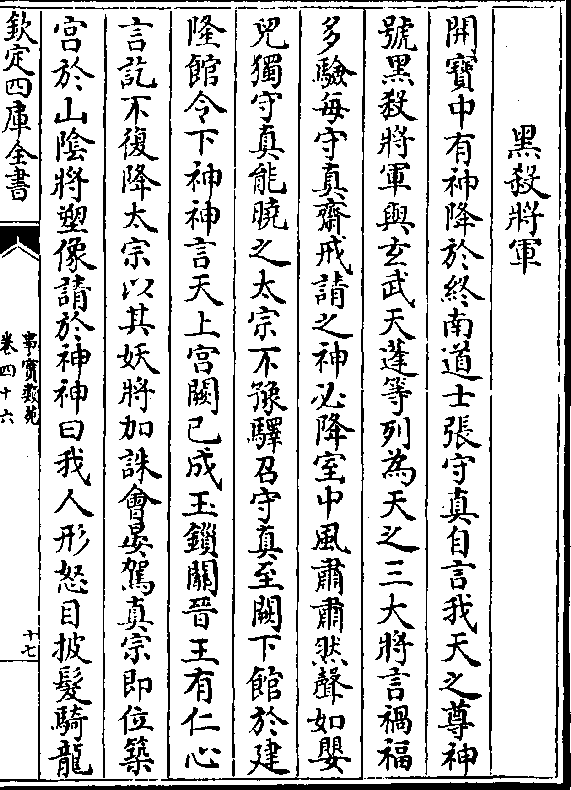 黑殺將軍
開寶中有神降於終南道士張守真自言我天之尊神
號黑殺將軍與玄武天蓬等列為天之三大將言禍福
多驗每守真齋戒請之神必降室中風肅肅然聲如嬰
兒獨守真能曉之太宗不豫驛召守真至闕下館於建
隆館令下神神言天上宮闕已成玉鎖關晉王有仁心
言訖不復降太宗以其妖將加誅會晏駕真宗即位築
宮於山陰將塑像請於神神曰我人形怒目披髮騎龍
欽定四庫全書
事實類苑
卷四十六
十七